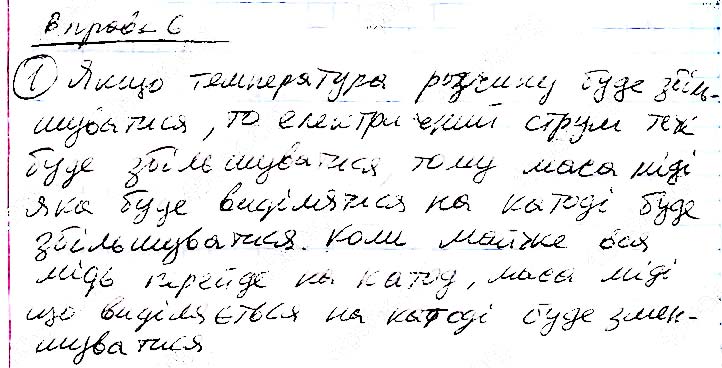 Вправа 6
① Якщо температура розчину буде збіль-
шуватися, то електричний струм теж
буде збільшуватися, тому маса міді
яка буде виділятися на катоді буде
збільшуватися. Коли майже вся
мідь перейде на катод, маса міді
що виділяється на катоді буде змен-
шуватися